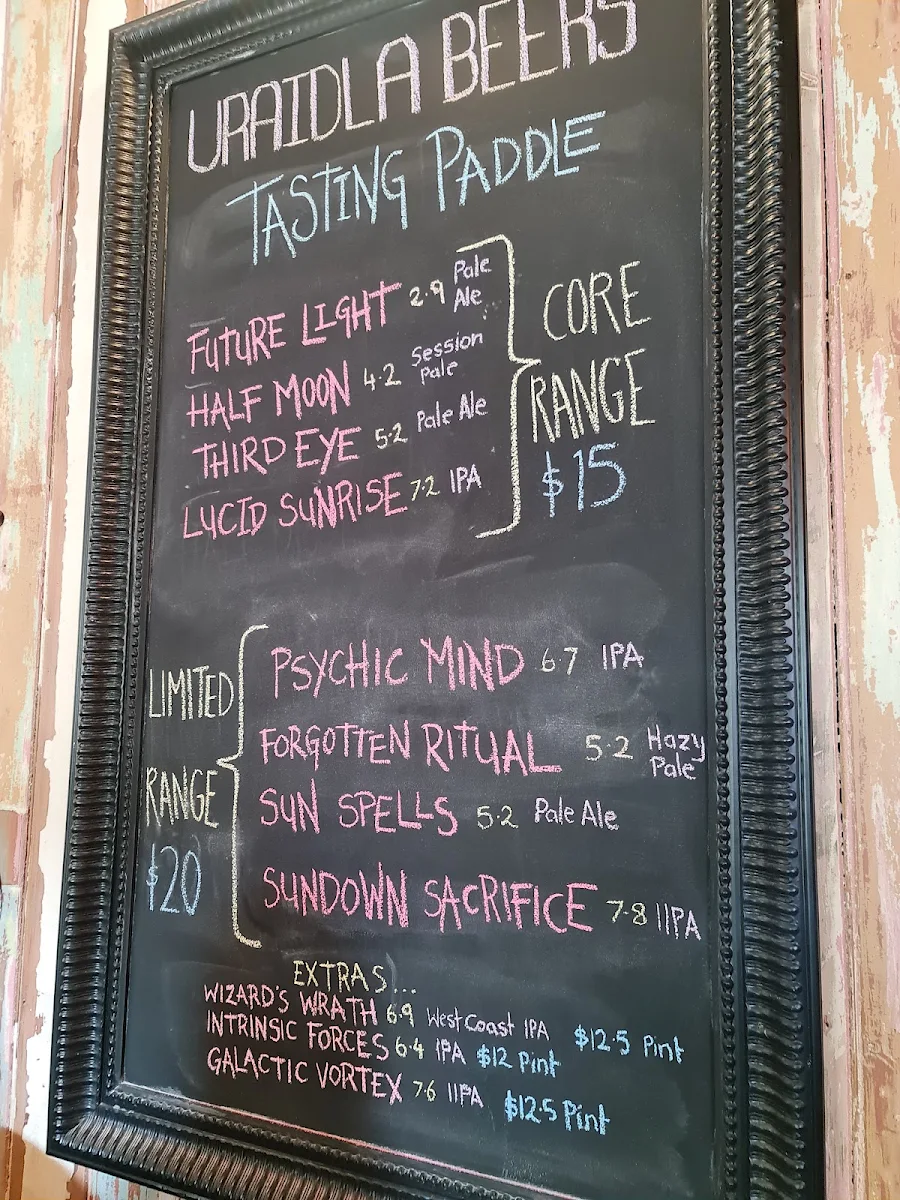 URAIDLA BEERS
TASTING PADDLE
FUTURE LIGHT 2.9 Pale Ale
HALF MOON 4.2 Session Pale
THIRD EYE 5.2 Pale Ale
LUCID SUNRISE 7.2 IPA
CORE
RANGE
$15
LIMITED
RANGE
$20
PSYCHIC MIND 6.7 IPA
FORGOTTEN RITUAL 5.2 Hazy Pale
SUN SPELLS 5.2 Pale Ale
SUNDOWN SACRIFICE 7.8 IIPA
EXTRAS...
WIZARD'S WRATH 6.9 West Coast IPA $12.5 Pint
INTRINSIC FORCES 6.4 IPA $12 Pint
GALACTIC VORTEX 7.6 IIPA $12.5 Pint